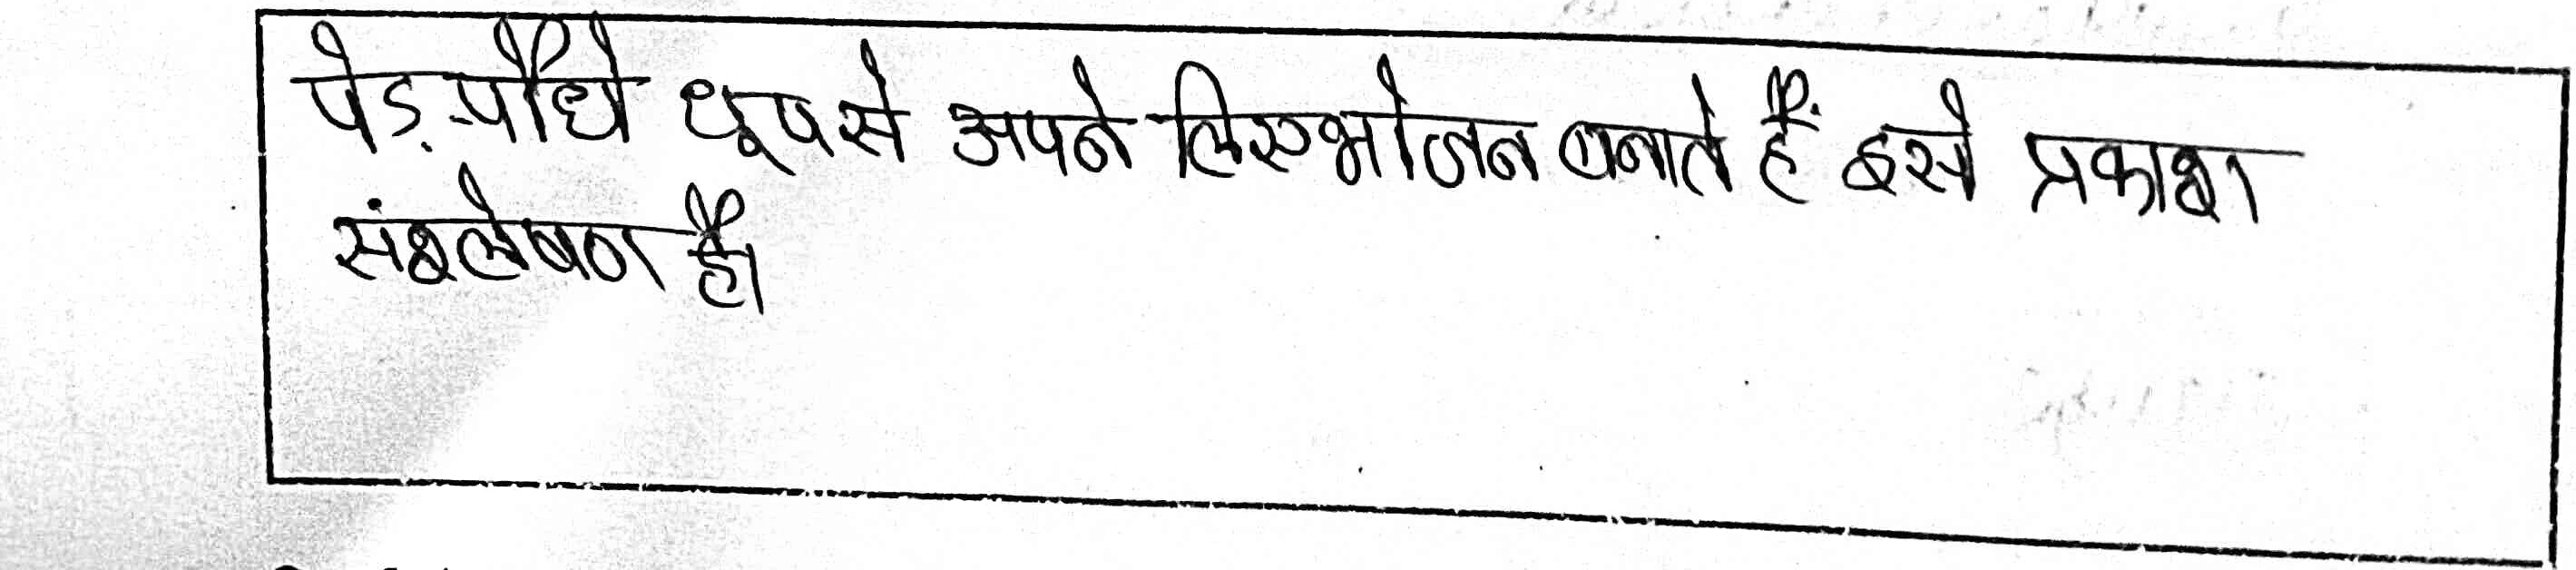 पेड़-पौधे धूप से अपने लिए भोजन बनाते हैं इसे प्रकाश
संश्लेषण है।